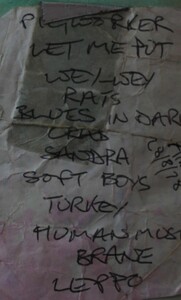 PIGWORKER
LET ME PUT
WEY/WEY
RATS
BLUES IN DARK
SANDRA
SOFT BOYS
TURKEY
HUMAN MUSIC
BRANE
LEPPO